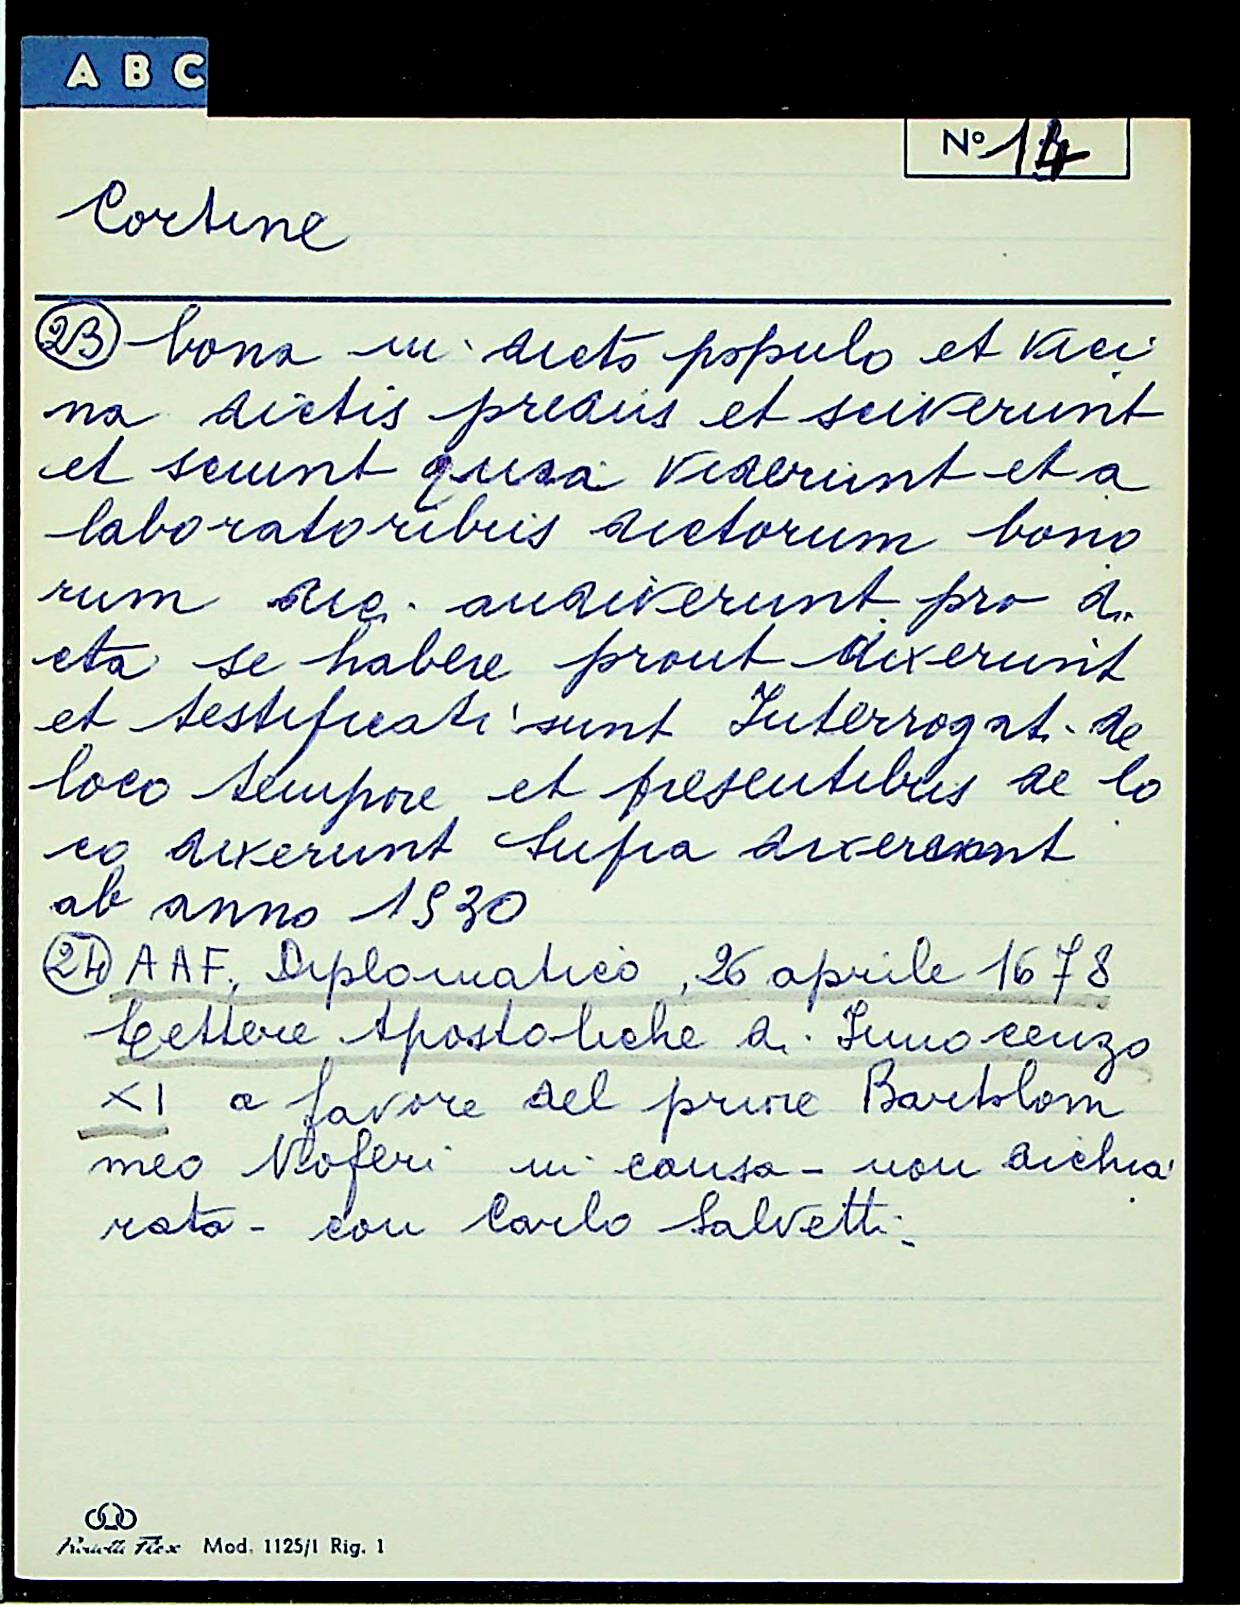 A B C
N° 14
Cortine
23 bona in dicto populo et vici
na dictis prediis et sciverunt
et sciunt quia viderunt et a
laboratoribus dictorum bono
rum dic. audiverunt pro di
cta se habere prout dixerunt
et testificati sunt Interrogati de
loco tempore et presentibus de lo
co dixerunt supra dixerunt
ab anno 1530
24 AAF, Diplomatico, 26 aprile 1678
Lettere Apostoliche di Innocenzo
XI a favore del priore Bartolom
meo Noferi in causa - non dichia
rata - con Carlo Salvetti.
Flex Mod. 1125/1 Rig. 1